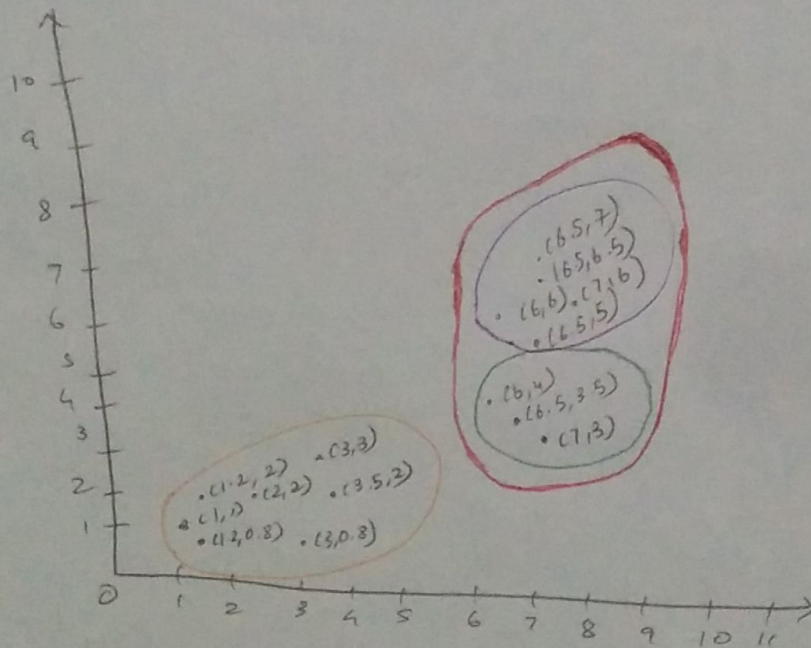 10
9
8
7
6
5
4
3
2
1
0
(6.5,7)
(6.5,6.5)
(6,6) (7,6)
(6.5,5)
(6,4)
(6.5,3.5)
(7,3)
(3,3)
(1.2,2) (2,2) (3.5,2)
(1,1)
(1.2,0.8) (3,0.8)
1 2 3 4 5 6 7 8 9 10 11